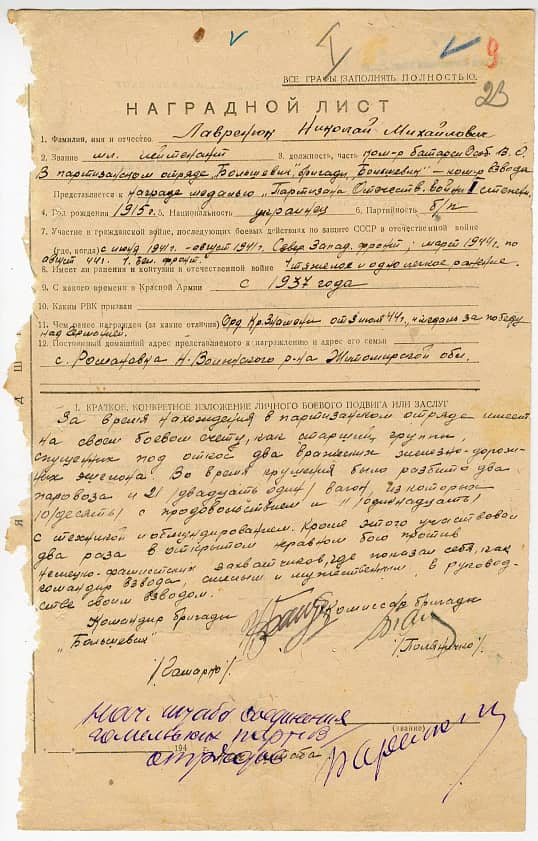 9
23
ВСЕ ГРАФЫ ЗАПОЛНЯТЬ ПОЛНОСТЬЮ.
НАГРАДНОЙ ЛИСТ
1. Фамилия, имя и отчество Лавренюк Николай Михайлович
2. Звание мл. лейтенант 3. должность, часть пом-р батареи Особ В.О.
В партизанском отряде Большевик, бригады "Большевик" - ком-р взвода
Представляется к награде медалью "Партизана Отечеств. войны I степени.
4. Год рождения 1915 г. 5. Национальность украинец 6. Партийность б/п
7. Участие в гражданской войне, последующих боевых действиях по защите СССР и отечественной войне
(где, когда) с июня 1941г. - август 1941г. Северо Запад. фронт; март 1944г. по
август 44г. фронт.
8. Имеет ли ранения и контузии в отечественной войне 1 тяжелое и одно легкое ранение.
9. С какого времени в Красной Армии с 1937 года
10. Каким РВК призван
11. Чем ранее награжден (за какие отличия) Орд. Кр. Знамени от 3 июля 44г., медаль за победу
над Германией.
12. Постоянный домашний адрес представляемого к награждению и адрес его семьи
с. Романовка Н-Волынского р-на Житомирской обл.
I. КРАТКОЕ, КОНКРЕТНОЕ ИЗЛОЖЕНИЕ ЛИЧНОГО БОЕВОГО ПОДВИГА ИЛИ ЗАСЛУГ
За время нахождения в партизанском отряде имеет
на своем боевом счету, как старший группы,
спущенных под откос два вражеских железно-дорож-
ных эшелона. Во время крушения было разбито два
паровоза и 21 /двадцать один/ вагон, из которых
10/десять/ с продовольствием и 11 /одиннадцать/
с техникой и обмундированием. Кроме этого участвовал
два раза в открытом неравном бою против
немецко-фашистских захватчиков, где показал себя, как
командир взвода, смелым и мужественным, в руковод-
стве своим взводом.
Командир бригады Комиссар бригады
"Большевик"
/Гамарко/. /Полянично/.
Нач. штаба соединения
гомельских партиз
отрядов
(звание)
194 г.